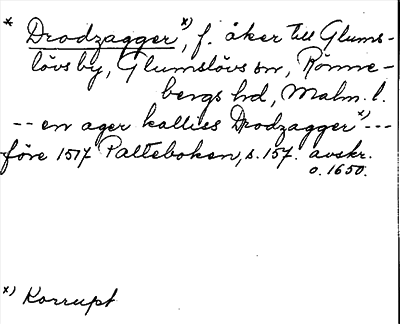 * Drodzagger x), f. åker till Glums-
lövs by, Glumslövs sn, Rönne-
bergs hd, Malm. l.
-- en ager kalliss Drodzagger x) ---
före 1517 Palteboken, s. 157. avskr.
o. 1650.
x) Korrupt